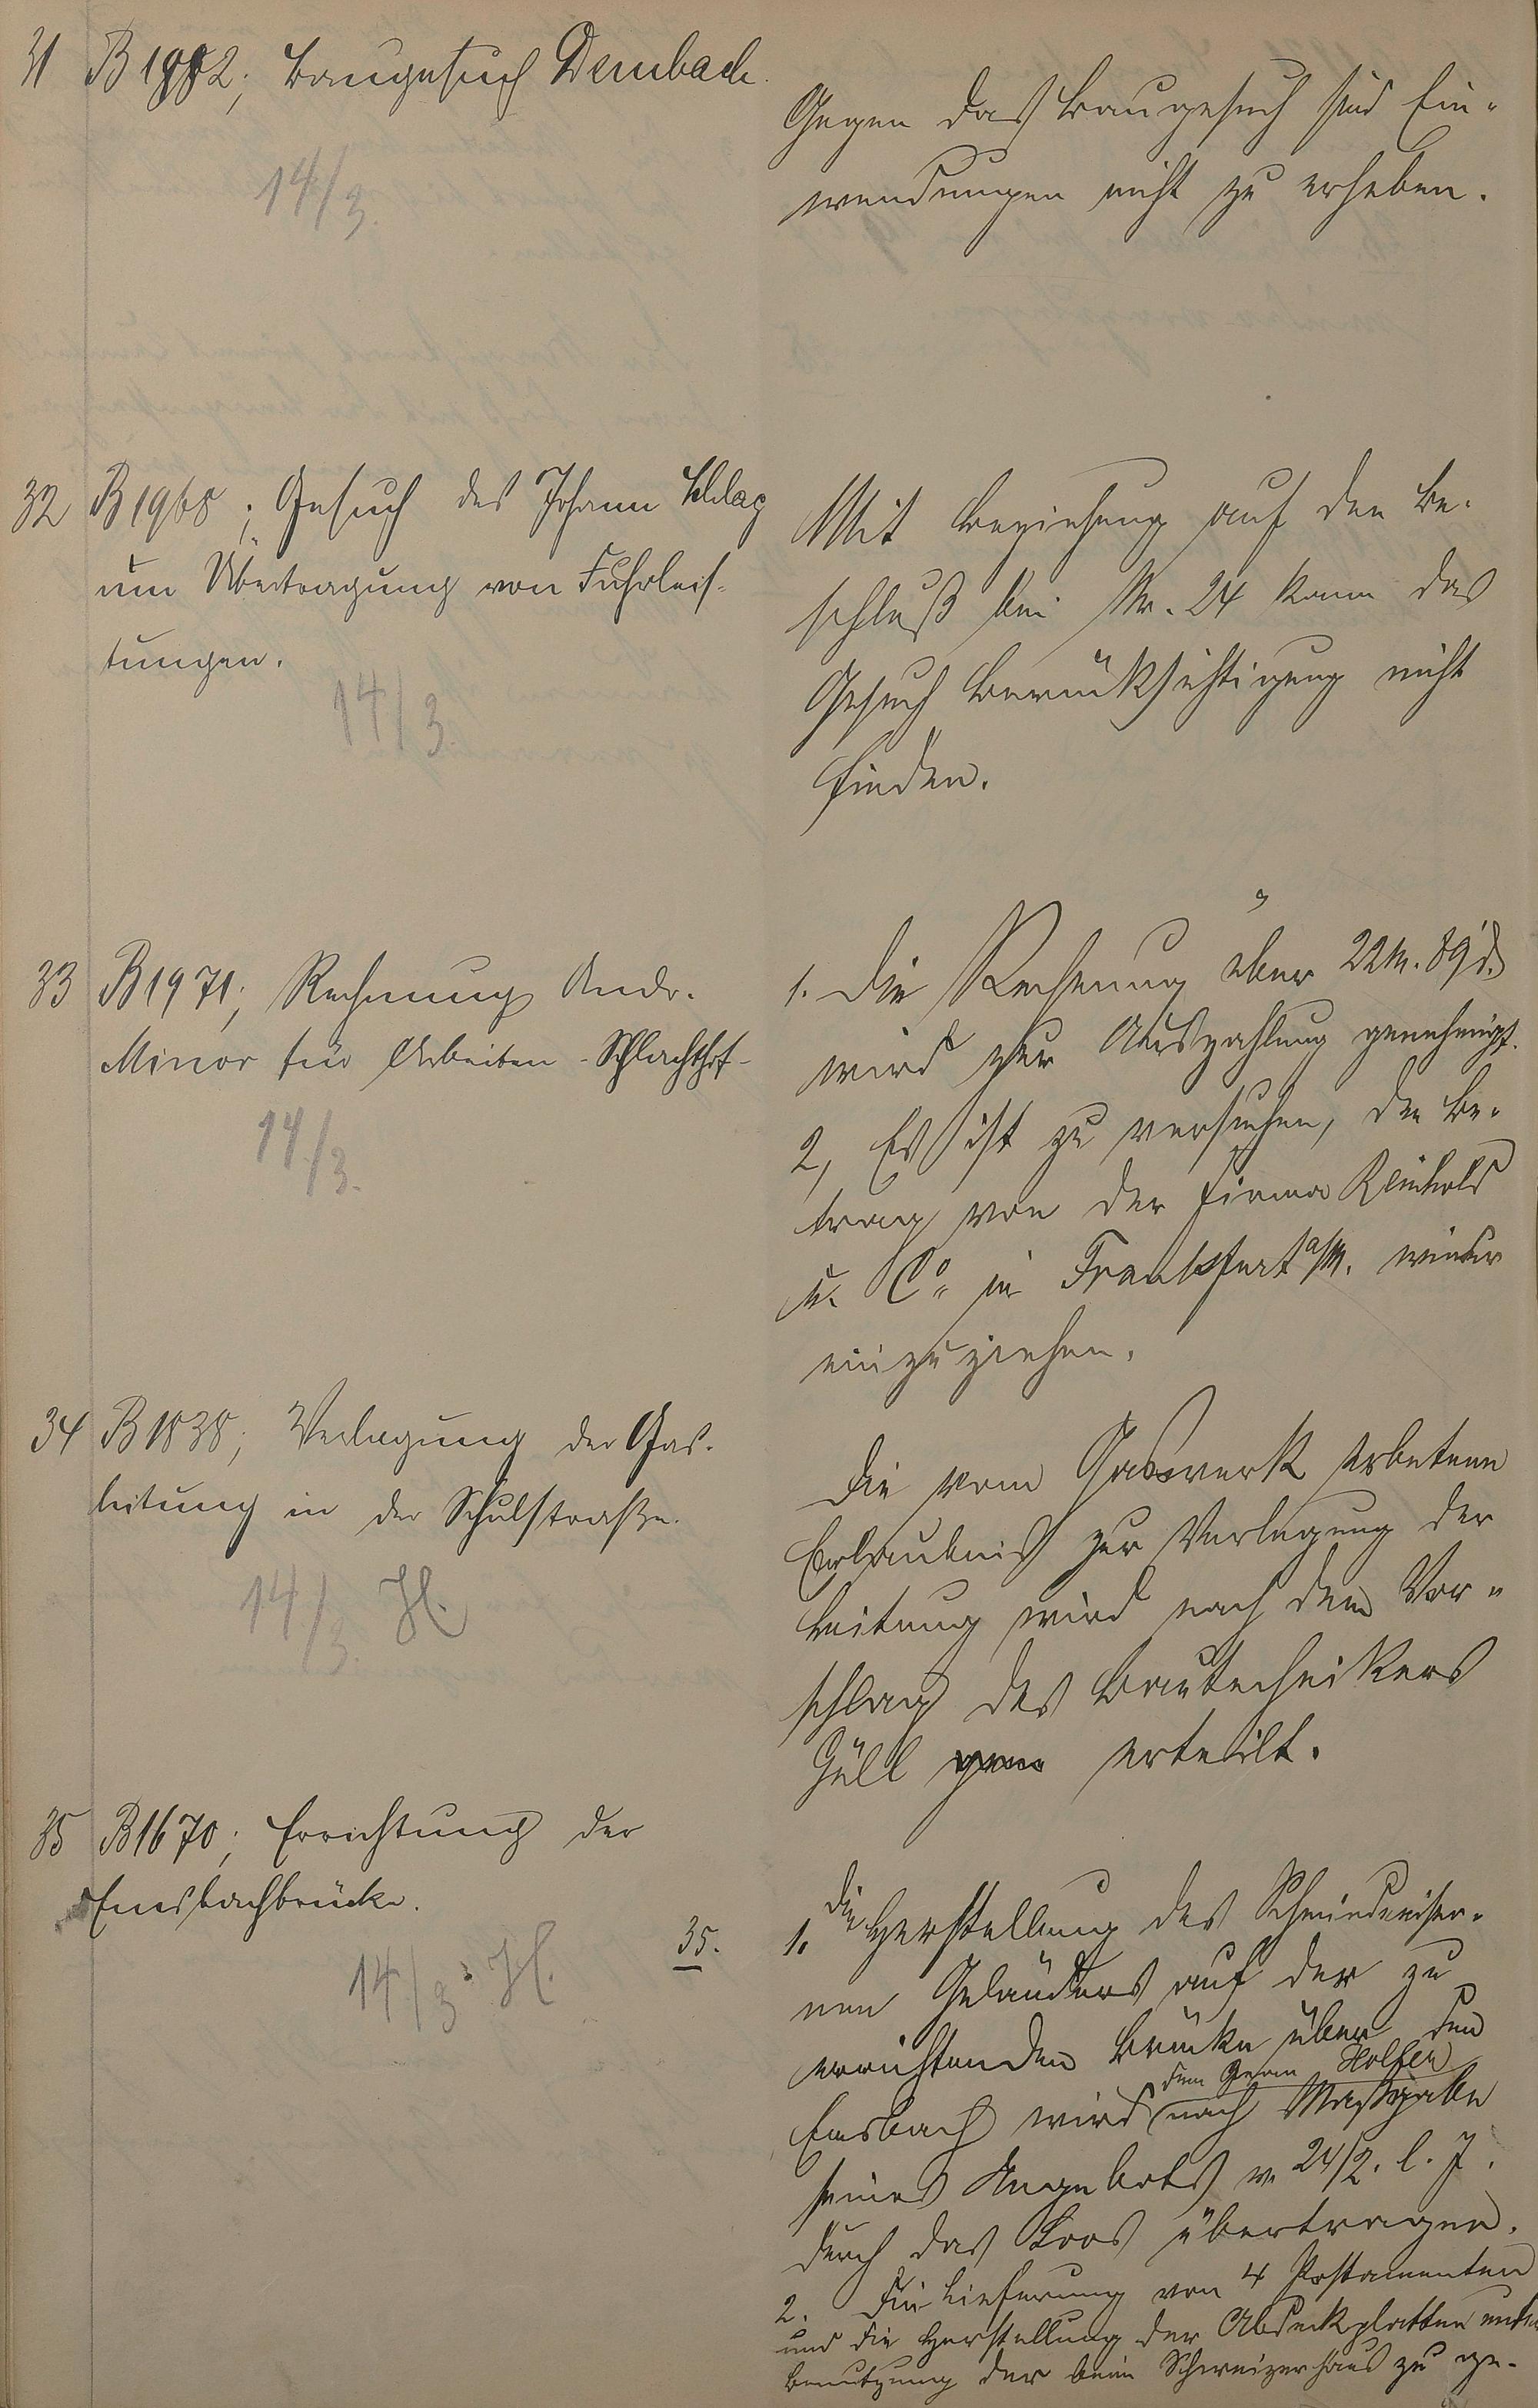 31 B 1982; Baugesuch Dernbach.
14/3.
Gegen das Baugesuch sind Ein-
wendungen nicht zu erheben.
32 B 1968; Gesuch des Johann
um Übertragung von Fuhrleis-
tungen.
14/3.
Mit Beziehung auf den Be-
schluß bei Nr. 24 kann das
Gesuch Berücksichtigung nicht
finden.
33 B 1971; Rechnung Andr.
Minor für Arbeiten - Schlachthof -
14/3.
1. Die Rechnung über 22 M. 89 d.
wird zur Auszahlung genehmigt.
2, Es ist zu versuchen, den Be-
trag von der Firma Reinhold
u. Co in Frankfurt a/M. wieder
einzuziehen.
34 B 1838; Verlegung der Gas-
leitung in der Schulstraße.
14/3. H.
Die vom Gaswerk erbetene
Erlaubnis zur Verlegung der
Leitung wird nach dem Vor-
schlag des Bautechnikers
Güll erteilt.
35 B 1670; Errichtung der
Emsbachbrücke.
14/3. H.
35.
1. Die Herstellung des Schmiedeeiser-
nen Geländers auf der zu
errichtenden Brücke über den
dem Herrn
Emsbach wird nach Maßgabe
seines Angebots v. 24/2. l. J.
durch das Loos übertragen.
2. Die Lieferung von 4 Postamenten
und die Herstellung der Abdeckplatten unter
Benutzung der beim Schweizerhaus zu ge-